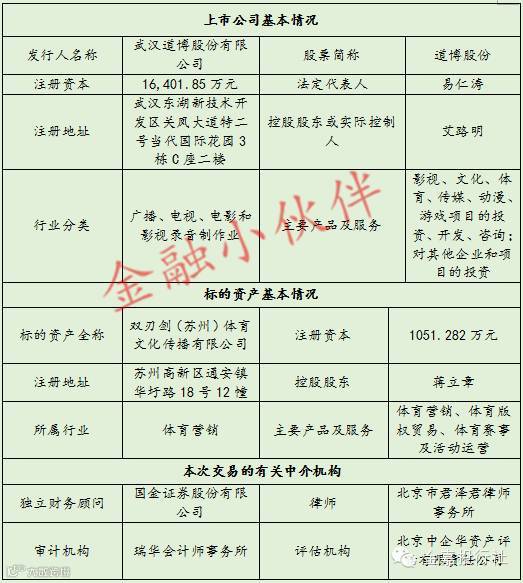 上市公司基本情况
发行人名称
武汉道博股份有限
公司
股票简称
道博股份
注册资本
16,401.85 万元
法定代表人
易仁涛
注册地址
武汉东湖新技术开
发区关凤大道特二
号当代国际花园 3
栋 C 座二楼
控股股东或实际控制
人
艾路明
行业分类
广播、电视、电影和
影视录音制作业
主要产品及服务
影视、文化、体
育、传媒、动漫、
游戏项目的投
资、开发、咨询；
对其他企业和项
目的投资
标的资产基本情况
标的资产全称
双刃剑（苏州）体育
文化传播有限公司
注册资本
1051.282 万元
注册地址
苏州高新区通安镇
华圩路 18 号 12 幢
控股股东
蒋立章
所属行业
体育营销
主要产品及服务
体育营销、体育版
权贸易、体育赛事
及活动运营
本次交易的有关中介机构
独立财务顾问
国金证券股份有限
公司
律师
北京市君泽君律师
事务所
审计机构
瑞华会计师事务所
评估机构
北京中企华资产评
估有限责任公司
金融小伙伴